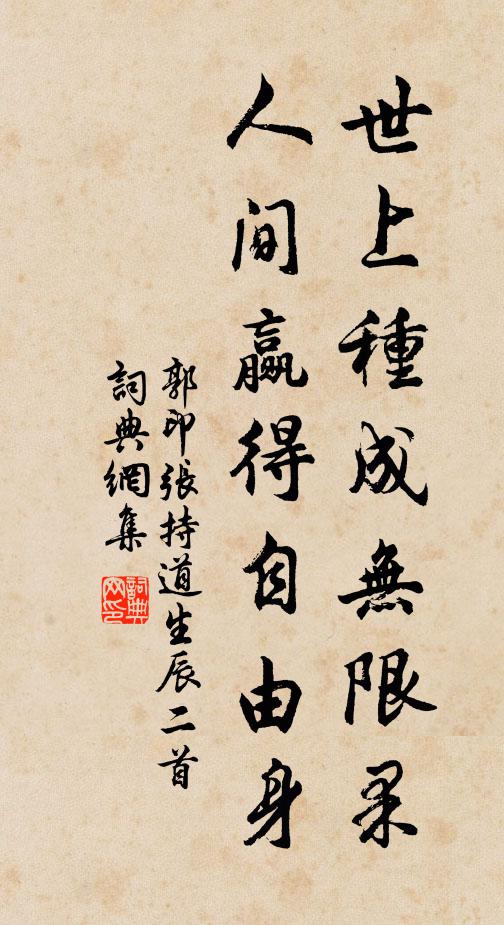 世上種成無限果
人间赢得自由身
郭印張持道生辰二首
詞典網集
詞典網印